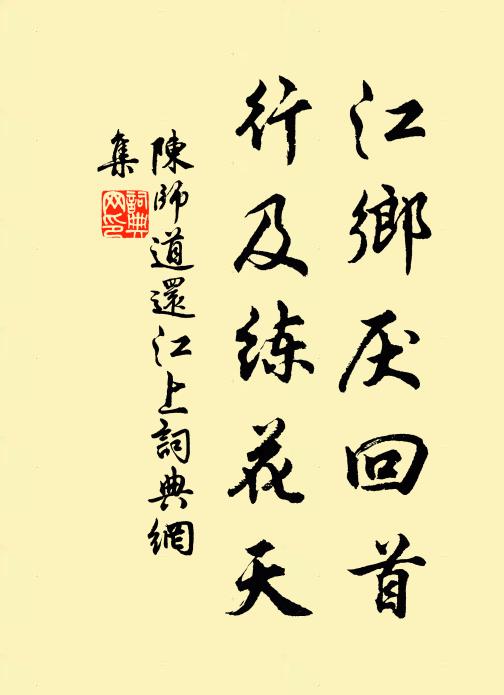 江鄉厌回首
行及练花天
陳師道還江上詞典網
集
詞典
网印